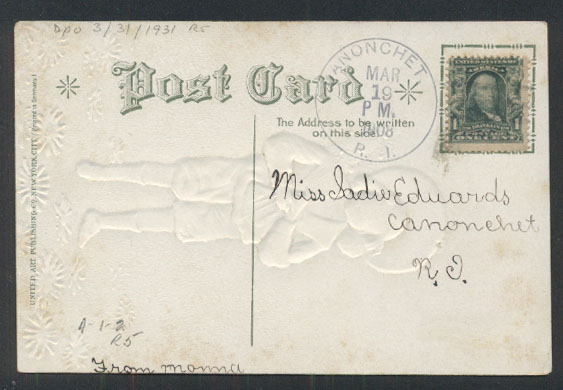 Dpo 3/31/1931 R5
Post Card
The Address to be written
on this side.
CANONCHET
MAR
19
P M.
1908
R. I.
UNITED STATES OF AMERICA
ONE CENT
UNITED ART PUBLISHING CO. NEW YORK CITY. (Printed in Germany)
Miss Sadie Edwards
Canonchet
R. I.
A-1-2
R5
From Monna